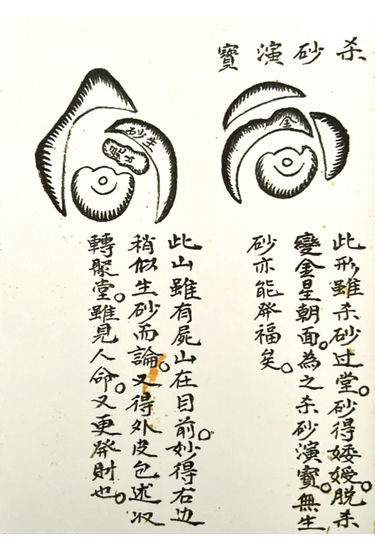 杀砂演寶
金
此形雖杀砂过堂。砂得脱杀
變金星朝面。為之杀砂演寶。無生
砂亦能發福矣。
生砂
此山雖有屍山在目前。妙得右边
稍似生砂而論。又得外皮包述収
轉聚堂。雖見人命。又更發則也。